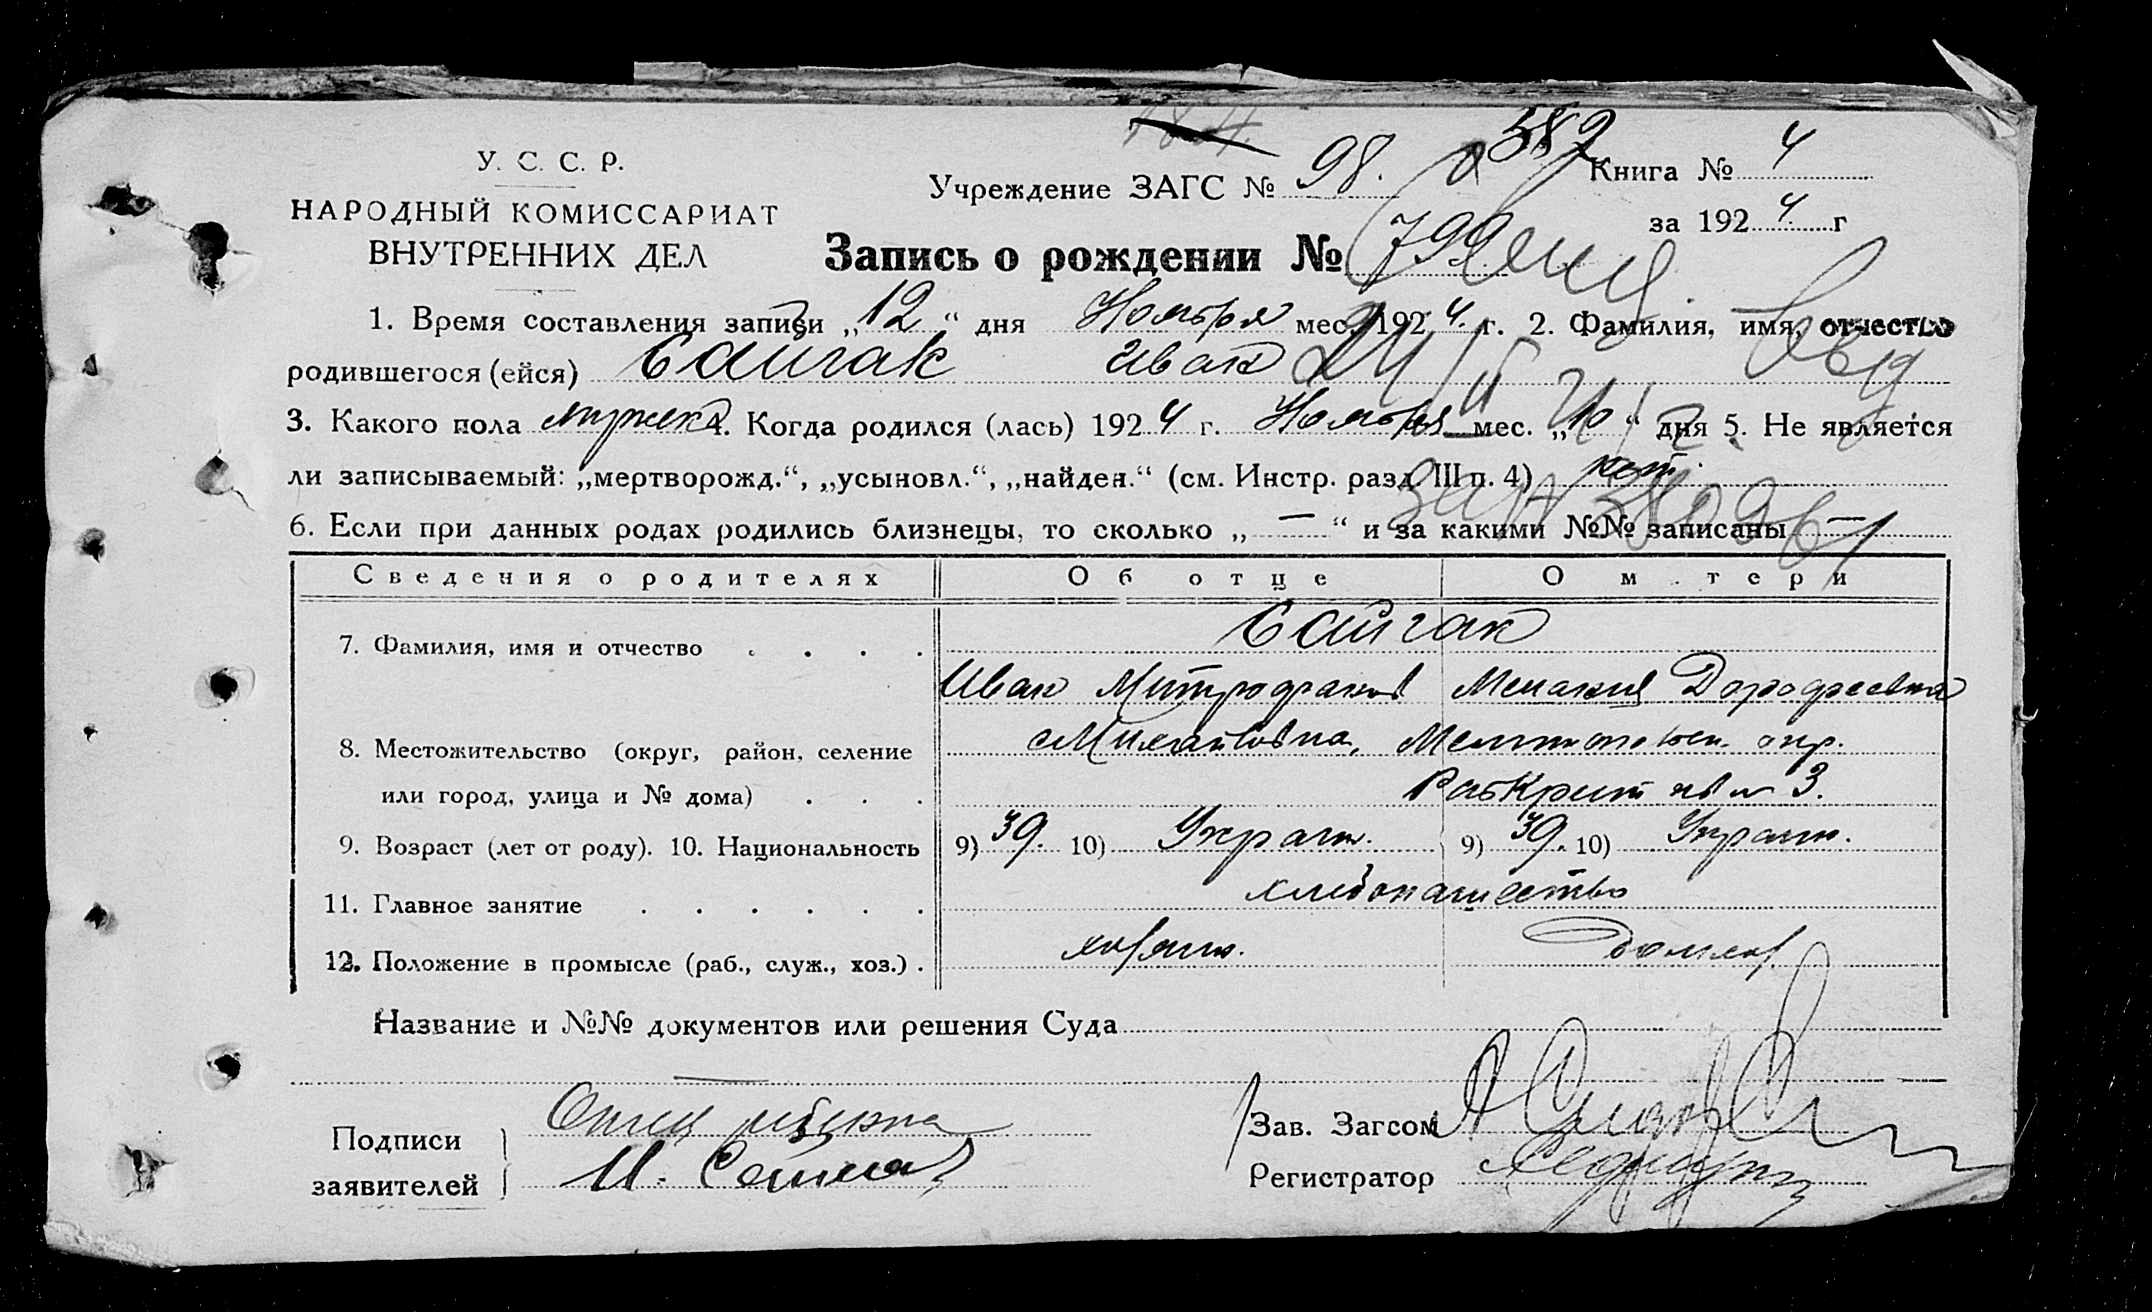 У. С. С. Р.
НАРОДНЫЙ КОМИССАРИАТ
ВНУТРЕННИХ ДЕЛ
Учреждение ЗАГС № 98. 582 Книга № 4
за 1924 г
Запись о рождении № 799
1. Время составления записи „12“ дня Ноября мес. 1924. г. 2. Фамилия, имя, отчество
родившегося (ейся) Сайгак Иван
3. Какого пола мужск. 4. Когда родился (лась) 1924 г. Ноября мес. „10“ дня 5. Не является
ли записываемый: „мертворожд.“, „усыновл.“, „найден.“ (см. Инстр. разд. III п. 4) нет.
6. Если при данных родах родились близнецы, то сколько „—“ и за какими №№ записаны —
Сведения о родителях Об отце О м.тери
7. Фамилия, имя и отчество . . . . Сайгак
Иван Митрофанов Мелания Дорофеевна
8. Местожительство (округ, район, селение Михайловка, Мелитопольск. окр.
или город, улица и № дома) . . . 3.
9. Возраст (лет от роду). 10. Национальность 9) 39. 10) Украин. 9) 39. 10) Украин.
11. Главное занятие . . . . . . хлебопашество
12. Положение в промысле (раб., служ., хоз.) . хозяин. домхоз.
Название и №№ документов или решения Суда
Подписи Отец ребенка
заявителей И. Сайгак
Зав. Загсом
Регистратор